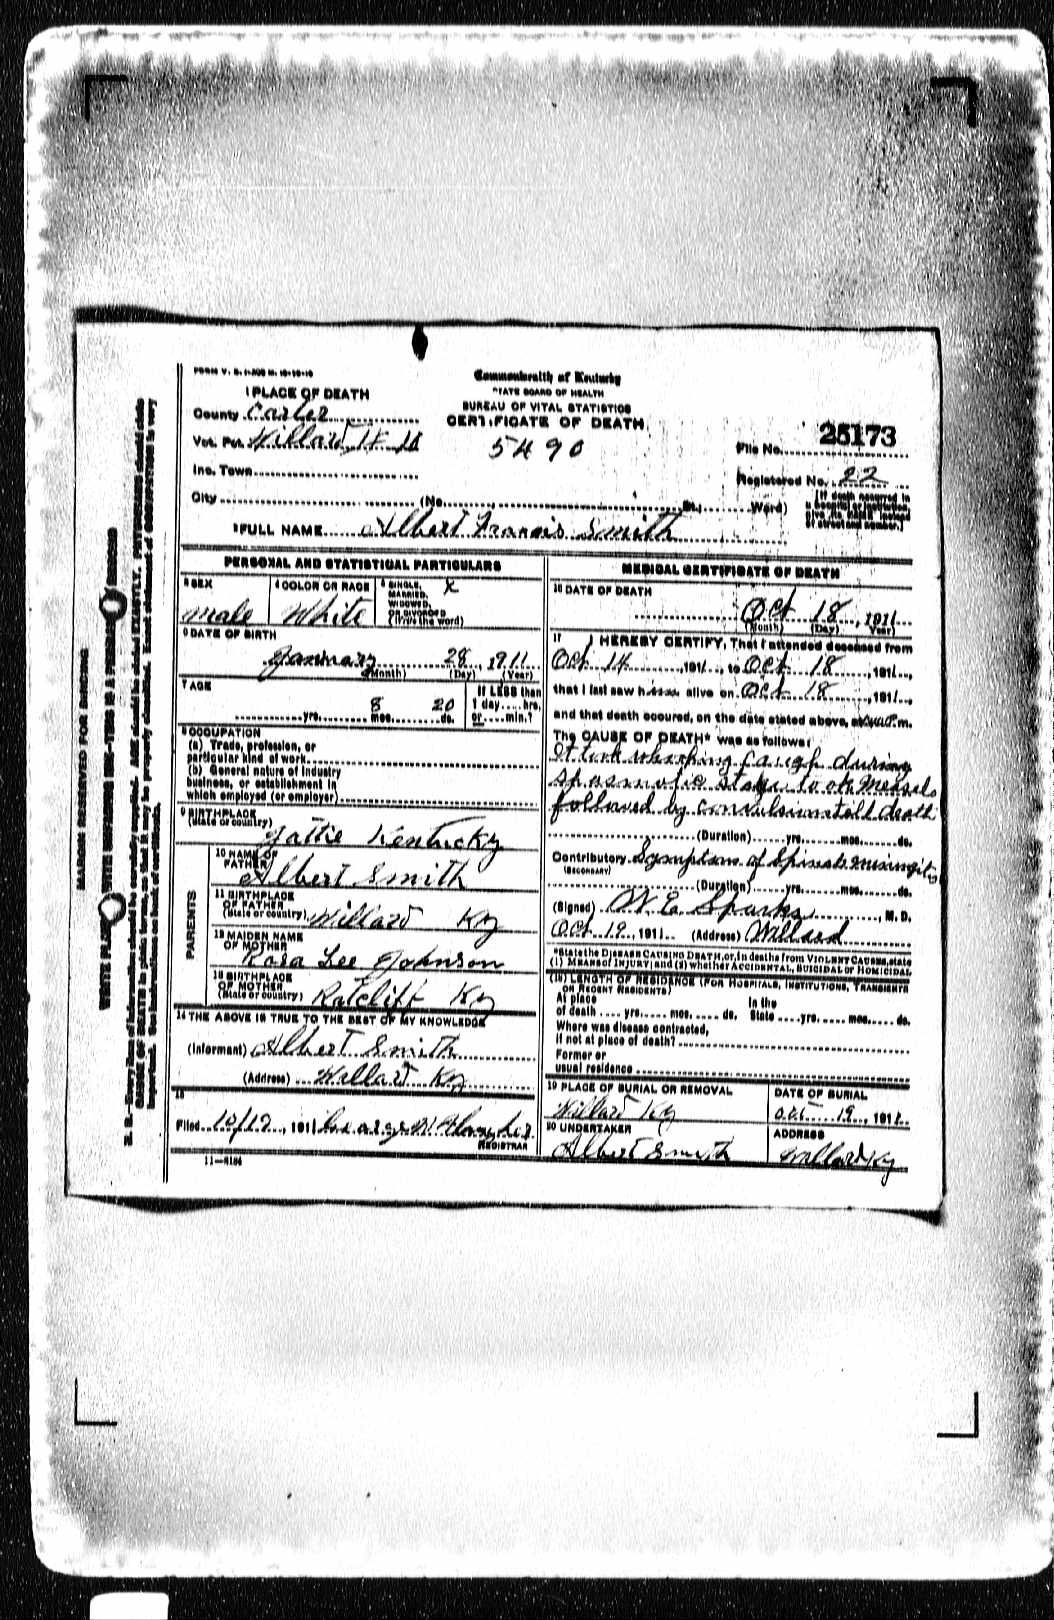 FORM V. S. 1-A
Commonwealth of Kentucky
STATE BOARD OF HEALTH
BUREAU OF VITAL STATISTICS
CERTIFICATE OF DEATH
5490
1 PLACE OF DEATH
County Carter
Vot. Pct. Willard
Inc. Town
City (No. St.; Ward)
File No. 25173
Registered No. 22
[If death occurred in
a hospital or institution,
give its NAME instead
of street and number.]
2 FULL NAME Albert Francis Smith
PERSONAL AND STATISTICAL PARTICULARS
3 SEX
male
4 COLOR OR RACE
White
5 SINGLE, X
MARRIED,
WIDOWED,
OR DIVORCED
(Write the word)
6 DATE OF BIRTH
January 28, 1911
(Month) (Day) (Year)
7 AGE
yrs. 8 mos. 20 ds.
If LESS than
1 day....hrs.
or....min.?
8 OCCUPATION
(a) Trade, profession, or
particular kind of work
(b) General nature of industry
business, or establishment in
which employed (or employer)
9 BIRTHPLACE
(State or country)
Kentucky
10 NAME OF
FATHER
Albert Smith
11 BIRTHPLACE
OF FATHER
(State or country) Willard Ky
12 MAIDEN NAME
OF MOTHER
Rosa Lee Johnson
13 BIRTHPLACE
OF MOTHER
(State or country) Ratcliff Ky
PARENTS
14 THE ABOVE IS TRUE TO THE BEST OF MY KNOWLEDGE
(Informant) Albert Smith
(Address) Willard Ky
15
Filed 10/19, 1911 George W
REGISTRAR
11-4184
MEDICAL CERTIFICATE OF DEATH
16 DATE OF DEATH
Oct 18, 1911
(Month) (Day) Year)
17 I HEREBY CERTIFY, That I attended deceased from
Oct 14, 1911, to Oct 18, 1911,
that I last saw h alive on Oct 18, 1911,
and that death occured, on the date stated above, at m.
The CAUSE OF DEATH* was as follows:
It took whooping Caugh during
spasmotic stage took Measels
followed by convulsions till death
(Duration) yrs. mos. ds.
Contributory Symptoms of Spinal meningitis
(SECONDARY)
(Duration) yrs. mos. ds.
(Signed) W E Sparks, M. D.
Oct 19, 1911 (Address) Willard
*State the DISEASE CAUSING DEATH, or, in deaths from VIOLENT CAUSES, state
(1) MEANS OF INJURY; and (2) whether ACCIDENTAL, SUICIDAL OR HOMICIDAL
(18) LENGTH OF RESIDENCE (FOR HOSPITALS, INSTITUTIONS, TRANSIENTS
OR RECENT RESIDENTS)
At place In the
of death yrs. mos. ds. State yrs. mos. ds.
Where was disease contracted,
if not at place of death?
Former or
usual residence
19 PLACE OF BURIAL OR REMOVAL
Willard Ky
DATE OF BURIAL
Oct 19, 1911
20 UNDERTAKER
Albert Smith
ADDRESS
Willard Ky
MARGIN RESERVED FOR BINDING